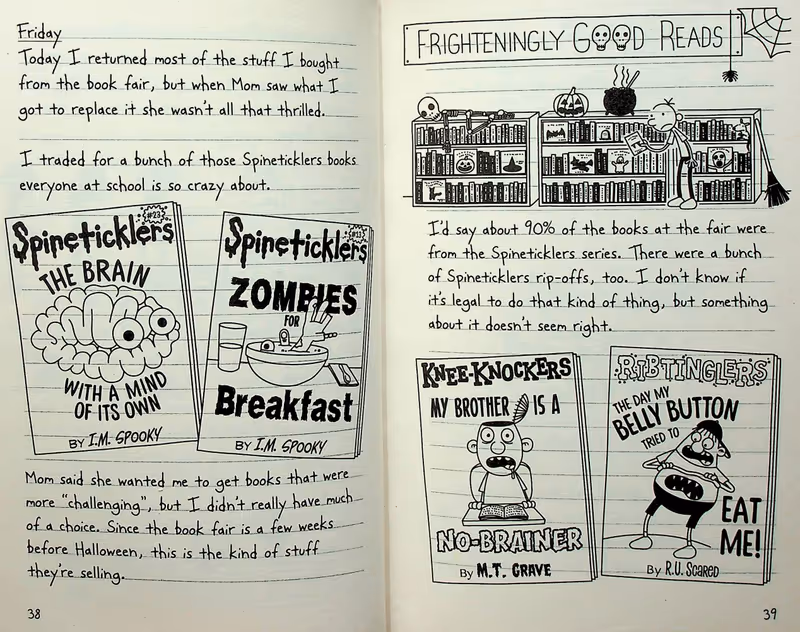 Friday
Today I returned most of the stuff I bought
from the book fair, but when Mom saw what I
got to replace it she wasn't all that thrilled.
I traded for a bunch of those Spineticklers books
everyone at school is so crazy about.
#23
Spineticklers
THE BRAIN
WITH A MIND
OF ITS OWN
BY I.M. SPOOKY
#13
Spineticklers
ZOMBIES
FOR
Breakfast
BY I.M. SPOOKY
Mom said she wanted me to get books that were
more "challenging", but I didn't really have much
of a choice. Since the book fair is a few weeks
before Halloween, this is the kind of stuff
they're selling.
38
FRIGHTENINGLY GOOD READS
I'd say about 90% of the books at the fair were
from the Spineticklers series. There were a bunch
of Spineticklers rip-offs, too. I don't know if
it's legal to do that kind of thing, but something
about it doesn't seem right.
KNEE-KNOCKERS
MY BROTHER IS A
NO-BRAINER
By M.T. GRAVE
RIBTINGLERS
THE DAY MY
BELLY BUTTON
TRIED TO
EAT
ME!
By R.U. Scared
39